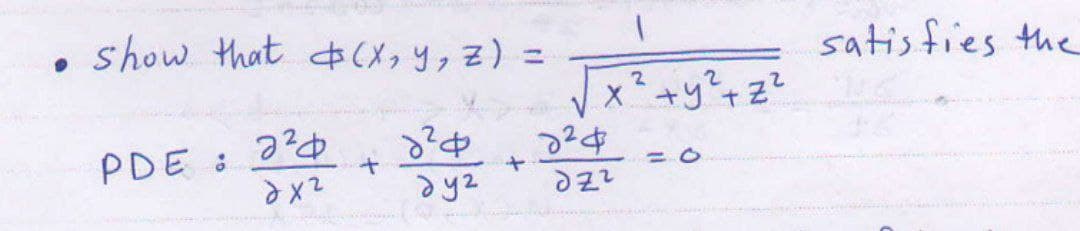 • show that ϕ(x, y, z) = 1 / √(x² + y² + z²) satisfies the
PDE : ∂²ϕ/∂x² + ∂²ϕ/∂y² + ∂²ϕ/∂z² = 0